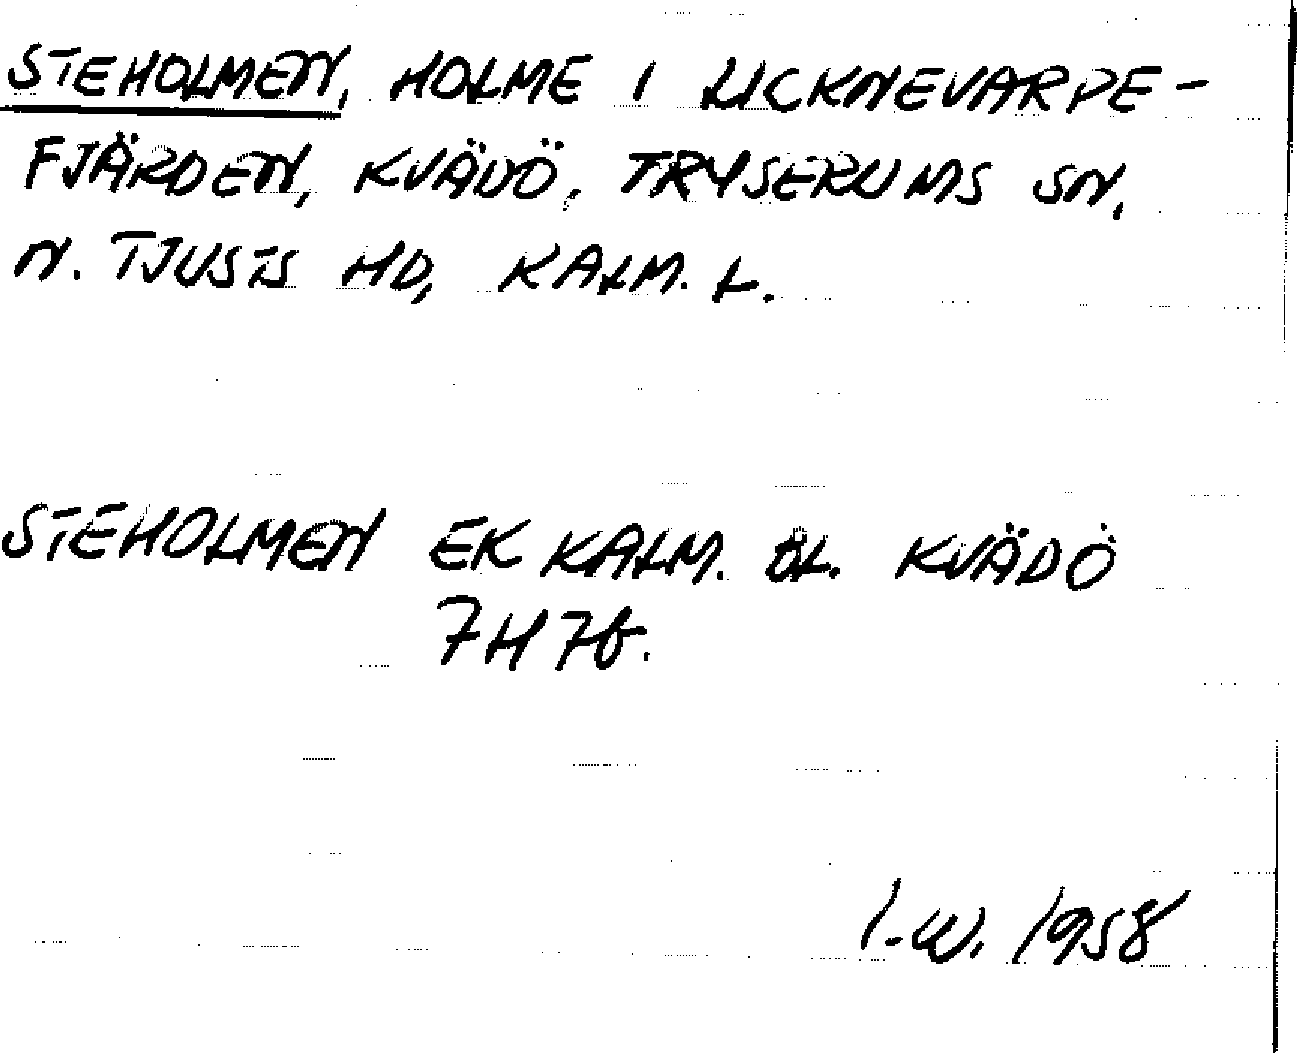 STEHOLMEN, HOLME I LICKNEVARPE-
FJÄRDEN, KVÄDÖ, TRYSERUMS SN,
N. TJUSTS HD, KALM. L.
STEHOLMEN EK KALM. ÖL. KVÄDÖ
7H 7b.
I-W. 1958